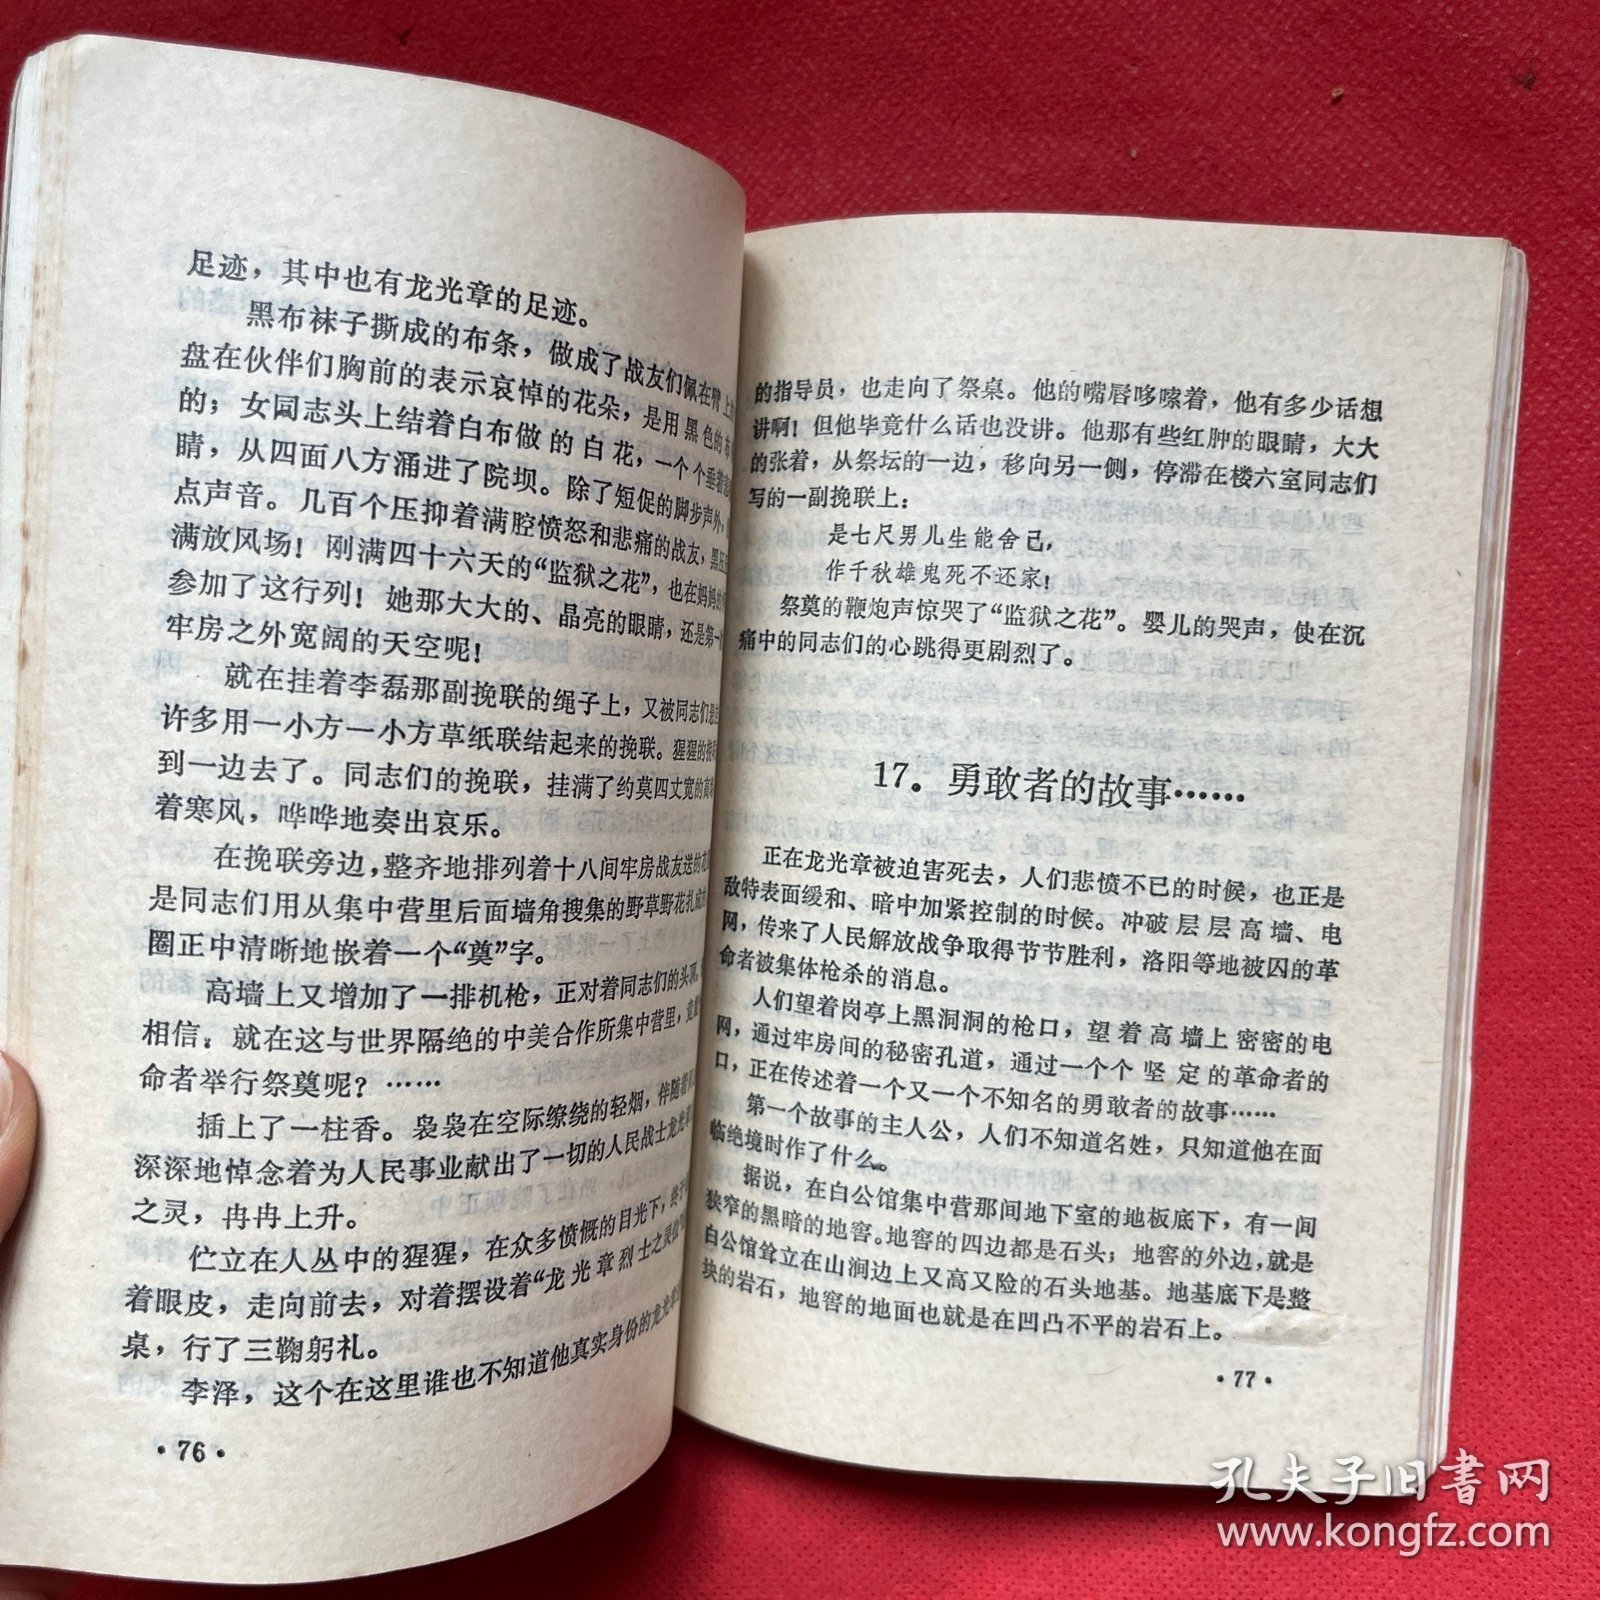 足迹，其中也有龙光章的足迹。
黑布袜子撕成的布条，做成了战友们佩在臂上
盘在伙伴们胸前的表示哀悼的花朵，是用黑色的布
的；女同志头上结着白布做的白花，一个个垂着
睛，从四面八方涌进了院坝。除了短促的脚步声外，
点声音。几百个压抑着满腔愤怒和悲痛的战友，黑压
满放风场！刚满四十六天的“监狱之花”，也在妈妈的
参加了这行列！她那大大的、晶亮的眼睛，还是第一
牢房之外宽阔的天空呢！
就在挂着李磊那副挽联的绳子上，又被同志们
许多用一小方一小方草纸联结起来的挽联。猩猩的挽
到一边去了。同志们的挽联，挂满了约莫四丈宽的高
着寒风，哗哗地奏出哀乐。
在挽联旁边，整齐地排列着十八间牢房战友送的花
是同志们用从集中营里后面墙角搜集的野草野花扎成
圈正中清晰地嵌着一个“奠”字。
高墙上又增加了一排机枪，正对着同志们的头顶，
相信：就在这与世界隔绝的中美合作所集中营里，竟
命者举行祭奠呢？……
插上了一柱香。袅袅在空际缭绕的轻烟，伴随着
深深地悼念着为人民事业献出了一切的人民战士龙光章
之灵，冉冉上升。
伫立在人丛中的猩猩，在众多愤慨的目光下，终于
着眼皮，走向前去，对着摆设着“龙光章烈士之灵位”
桌，行了三鞠躬礼。
李泽，这个在这里谁也不知道他真实身份的龙光章
·76·
的指导员，也走向了祭桌。他的嘴唇哆嗦着，他有多少话想
讲啊！但他毕竟什么话也没讲。他那有些红肿的眼睛，大大
的张着，从祭坛的一边，移向另一侧，停滞在楼六室同志们
写的一副挽联上：
是七尺男儿生能舍己，
作千秋雄鬼死不还家！
祭奠的鞭炮声惊哭了“监狱之花”。婴儿的哭声，使在沉
痛中的同志们的心跳得更剧烈了。
17。勇敢者的故事……
正在龙光章被迫害死去，人们悲愤不已的时候，也正是
敌特表面缓和、暗中加紧控制的时候。冲破层层高墙、电
网，传来了人民解放战争取得节节胜利，洛阳等地被囚的革
命者被集体枪杀的消息。
人们望着岗亭上黑洞洞的枪口，望着高墙上密密的电
网，通过牢房间的秘密孔道，通过一个个坚定的革命者的
口，正在传述着一个又一个不知名的勇敢者的故事……
第一个故事的主人公，人们不知道名姓，只知道他在面
临绝境时作了什么。
据说，在白公馆集中营那间地下室的地板底下，有一间
狭窄的黑暗的地窖。地窖的四边都是石头；地窖的外边，就是
白公馆耸立在山涧边上又高又险的石头地基。地基底下是整
块的岩石，地窖的地面也就是在凹凸不平的岩石上。
·77·
孔夫子旧书网
www.kongfz.com